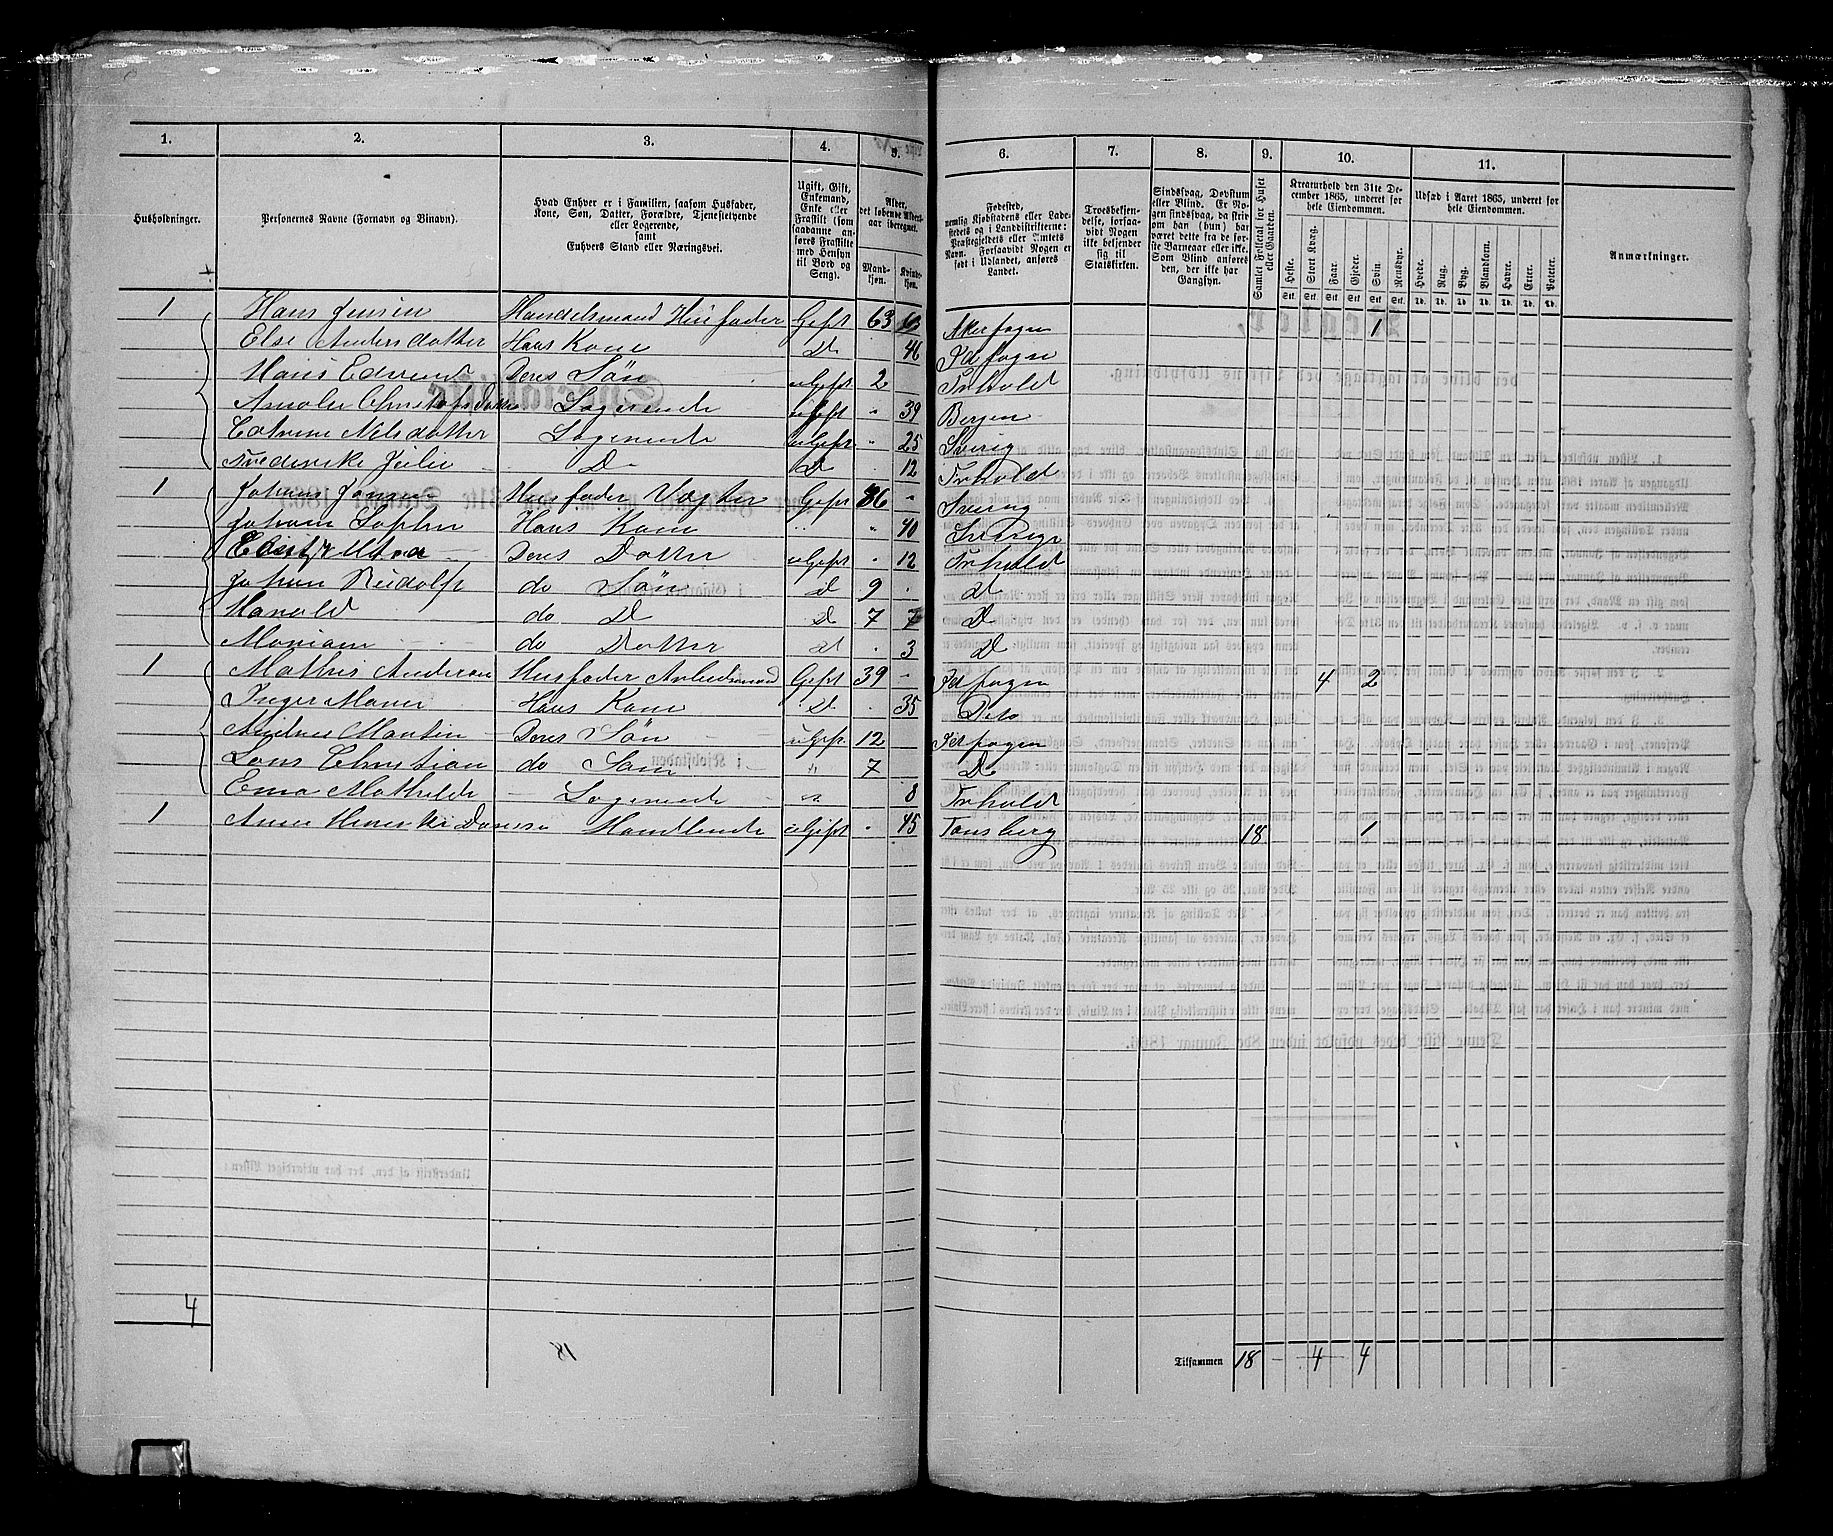 1. 2. 3. 4. 5.
Husholdninger.
Personernes Navne (Fornavn og Binavn).
Hvad Enhver er i Familien, saasom Husfader, Kone, Søn, Datter, Forældre, Tjenestetyende eller Logerende, samt Enhvers Stand eller Næringsvei.
Ugift, Gift, Enkemand, Enke eller Fraskilt (som saadanne anføres Fraskilte med Hensyn til Bord og Seng).
Alder, det løbende Alders-aar iberegnet.
Mand-kjøn. Kvinde-kjøn.
1 Hans Jensen Handelsmand Husfader Gift 63
Else Andersdatter Hans Kone D 46
Hans Edvard Deres Søn uGift 2
Christofsdatter Logerende uGift " 39
Catrine Nelsdatter Logerende uGift " 25
Frederike Julie D D 12
1 Johans Jansen Husfader Vægter Gift 36 "
Johana Sophie Hans Kone " " 40
Deres Datter uGift 12
Johan Rudolf do Søn D 9
Harald do D D 7
Mariam do Datter D 3
1 Mathis Anderson Husfader Arbeidsmand Gift 39 "
Inger Maria Hans Kone D 35
Andreas Martin Deres Søn uGift 12
Lars Christian do Søn " 7
Ema Mathilde Logerende " 8
1 Anne Handlende uGift 45
4
18
6. 7. 8. 9. 10. 11.
Fødested, nemlig Kjøbstadens eller Ladestedets og i Landdistrikterne: Præstegjeldets eller Amtets Navn. Forsaavidt Nogen er født i Udlandet, anføres Landet.
Troesbekjendelse, forsaavidt Nogen ikke bekjender sig til Statskirken.
Sindssvag, Døvstum eller Blind. Er Nogen sindssvag, da skrives om han (hun) har været dette fra de første Barneaar eller ikke. Som Blind anføres den, der ikke har Gangsyn.
Samlet Folketal for Huset eller Gaarden.
Kreaturhold den 31te December 1865, underet for hele Eiendommen.
Heste. Stort Kvæg. Faar. Gjeder. Svin. Rensdyr.
Udsæd i Aaret 1865, underet for hele Eiendommen.
Hvede. Rug. Byg. Blandkorn. Havre. Erter. Poteter.
Anmærkninger.
Akersogn 1
Idsogn
Frhald
Bergen
Sverig
Frhald
Sverig
Sverige
Frhald
D
D
D
Idsogn 4 2
Dito
Idsogn
D
Frhald
Tønsberg 18 1
Tilsammen 18 4 4